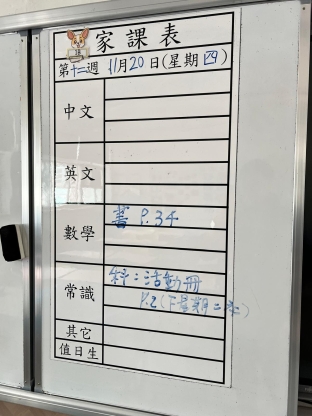 家課表
第十二週 11月20日(星期四)
中文
英文
數學 書 P.34
常識 科：活動冊
P.2(下星期二交)
其它
值日生